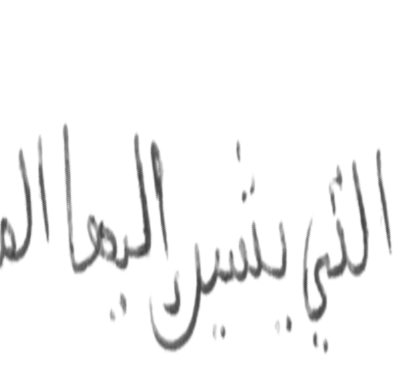 التي يشير اليها